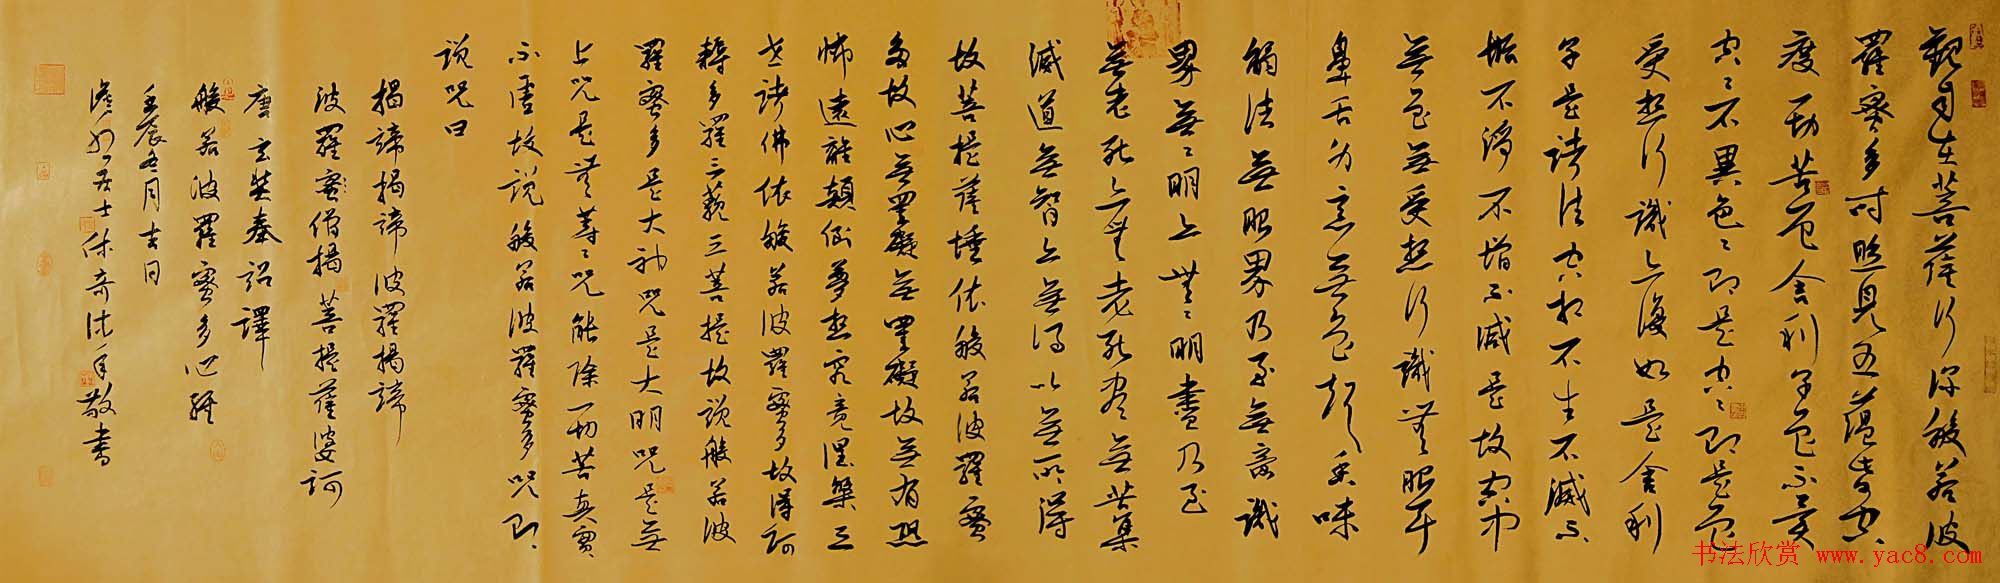 觀自在菩薩行深般若波
羅密多時照見五蘊皆空
度一切苦厄舍利子色不異
空々不異色々即是空々即是色
受想行識亦復如是舍利
子是諸法空相不生不滅不
垢不淨不增不減是故空中
無色無受想行識無眼耳
鼻舌身意無色聲香味
觸法無眼界乃至無意識
界無々明亦無々明盡乃至
無老死亦無老死盡無苦集
滅道無智亦無得以無所得
故菩提薩埵依般若波羅密
多故心無罣礙無罣礙故無有恐
怖遠離顛倒夢想究竟涅槃三
世諸佛依般若波羅密多故得阿
耨多羅三藐三菩提故說般若波
羅密多是大神咒是大明咒是無
上咒是無等々咒能除一切苦真實
不虛故說般若波羅密多咒即
說咒曰
揭諦揭諦波羅揭諦
波羅密僧揭菩提薩婆訶
唐玄奘奉詔譯
般若波羅密多心經
壬辰冬月吉日
居士敬書
书法欣赏 www.yac8.com